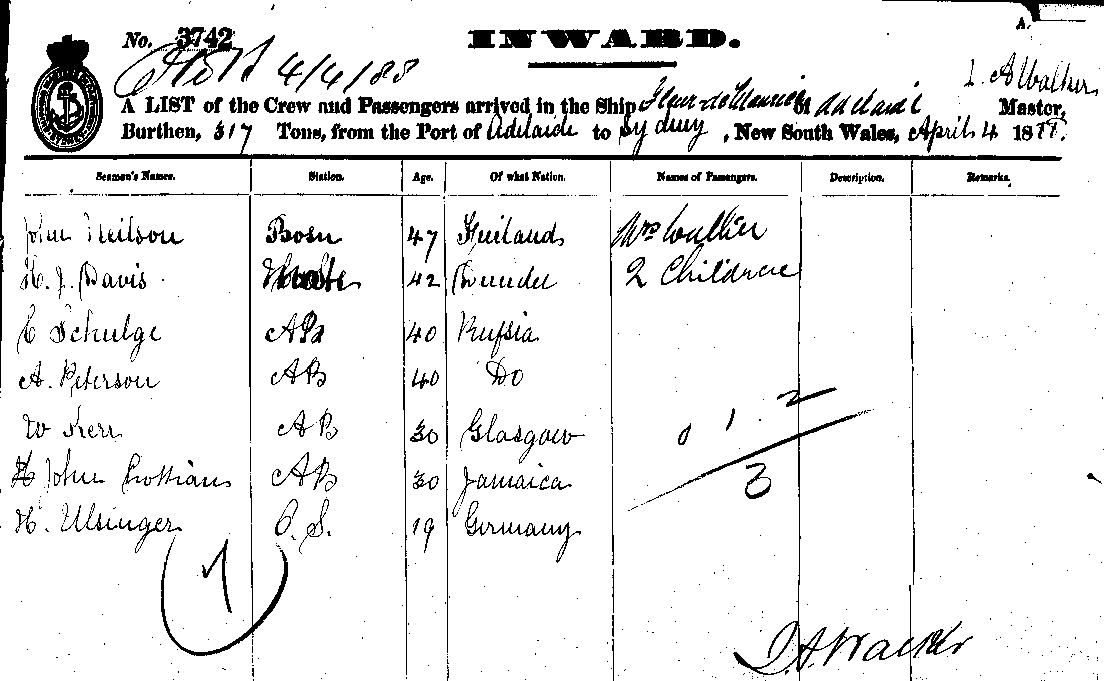 A.
No. 3742 INWARD.
4/4/88 L. A Walker
A LIST of the Crew and Passengers arrived in the Ship Fleur de Maurice of Adelaide Master,
Burthen, 317 Tons, from the Port of Adelaide to Sydney, New South Wales, April 4 1888.
Seamen's Names. Station. Age. Of what Nation. Names of Passengers. Description. Remarks.
John Neilson Bosn 47 Mrs Walker
H. J. Davis 42 Dundee 2 Children
C Schulge AB 40 Russia
A. Peterson AB 40 Do
W Kerr AB 30 Glasgow
H John AB 30 Jamaica
H. Ulsinger O. S. 19 Germany
0 1 2
3
7
L. A. Walker